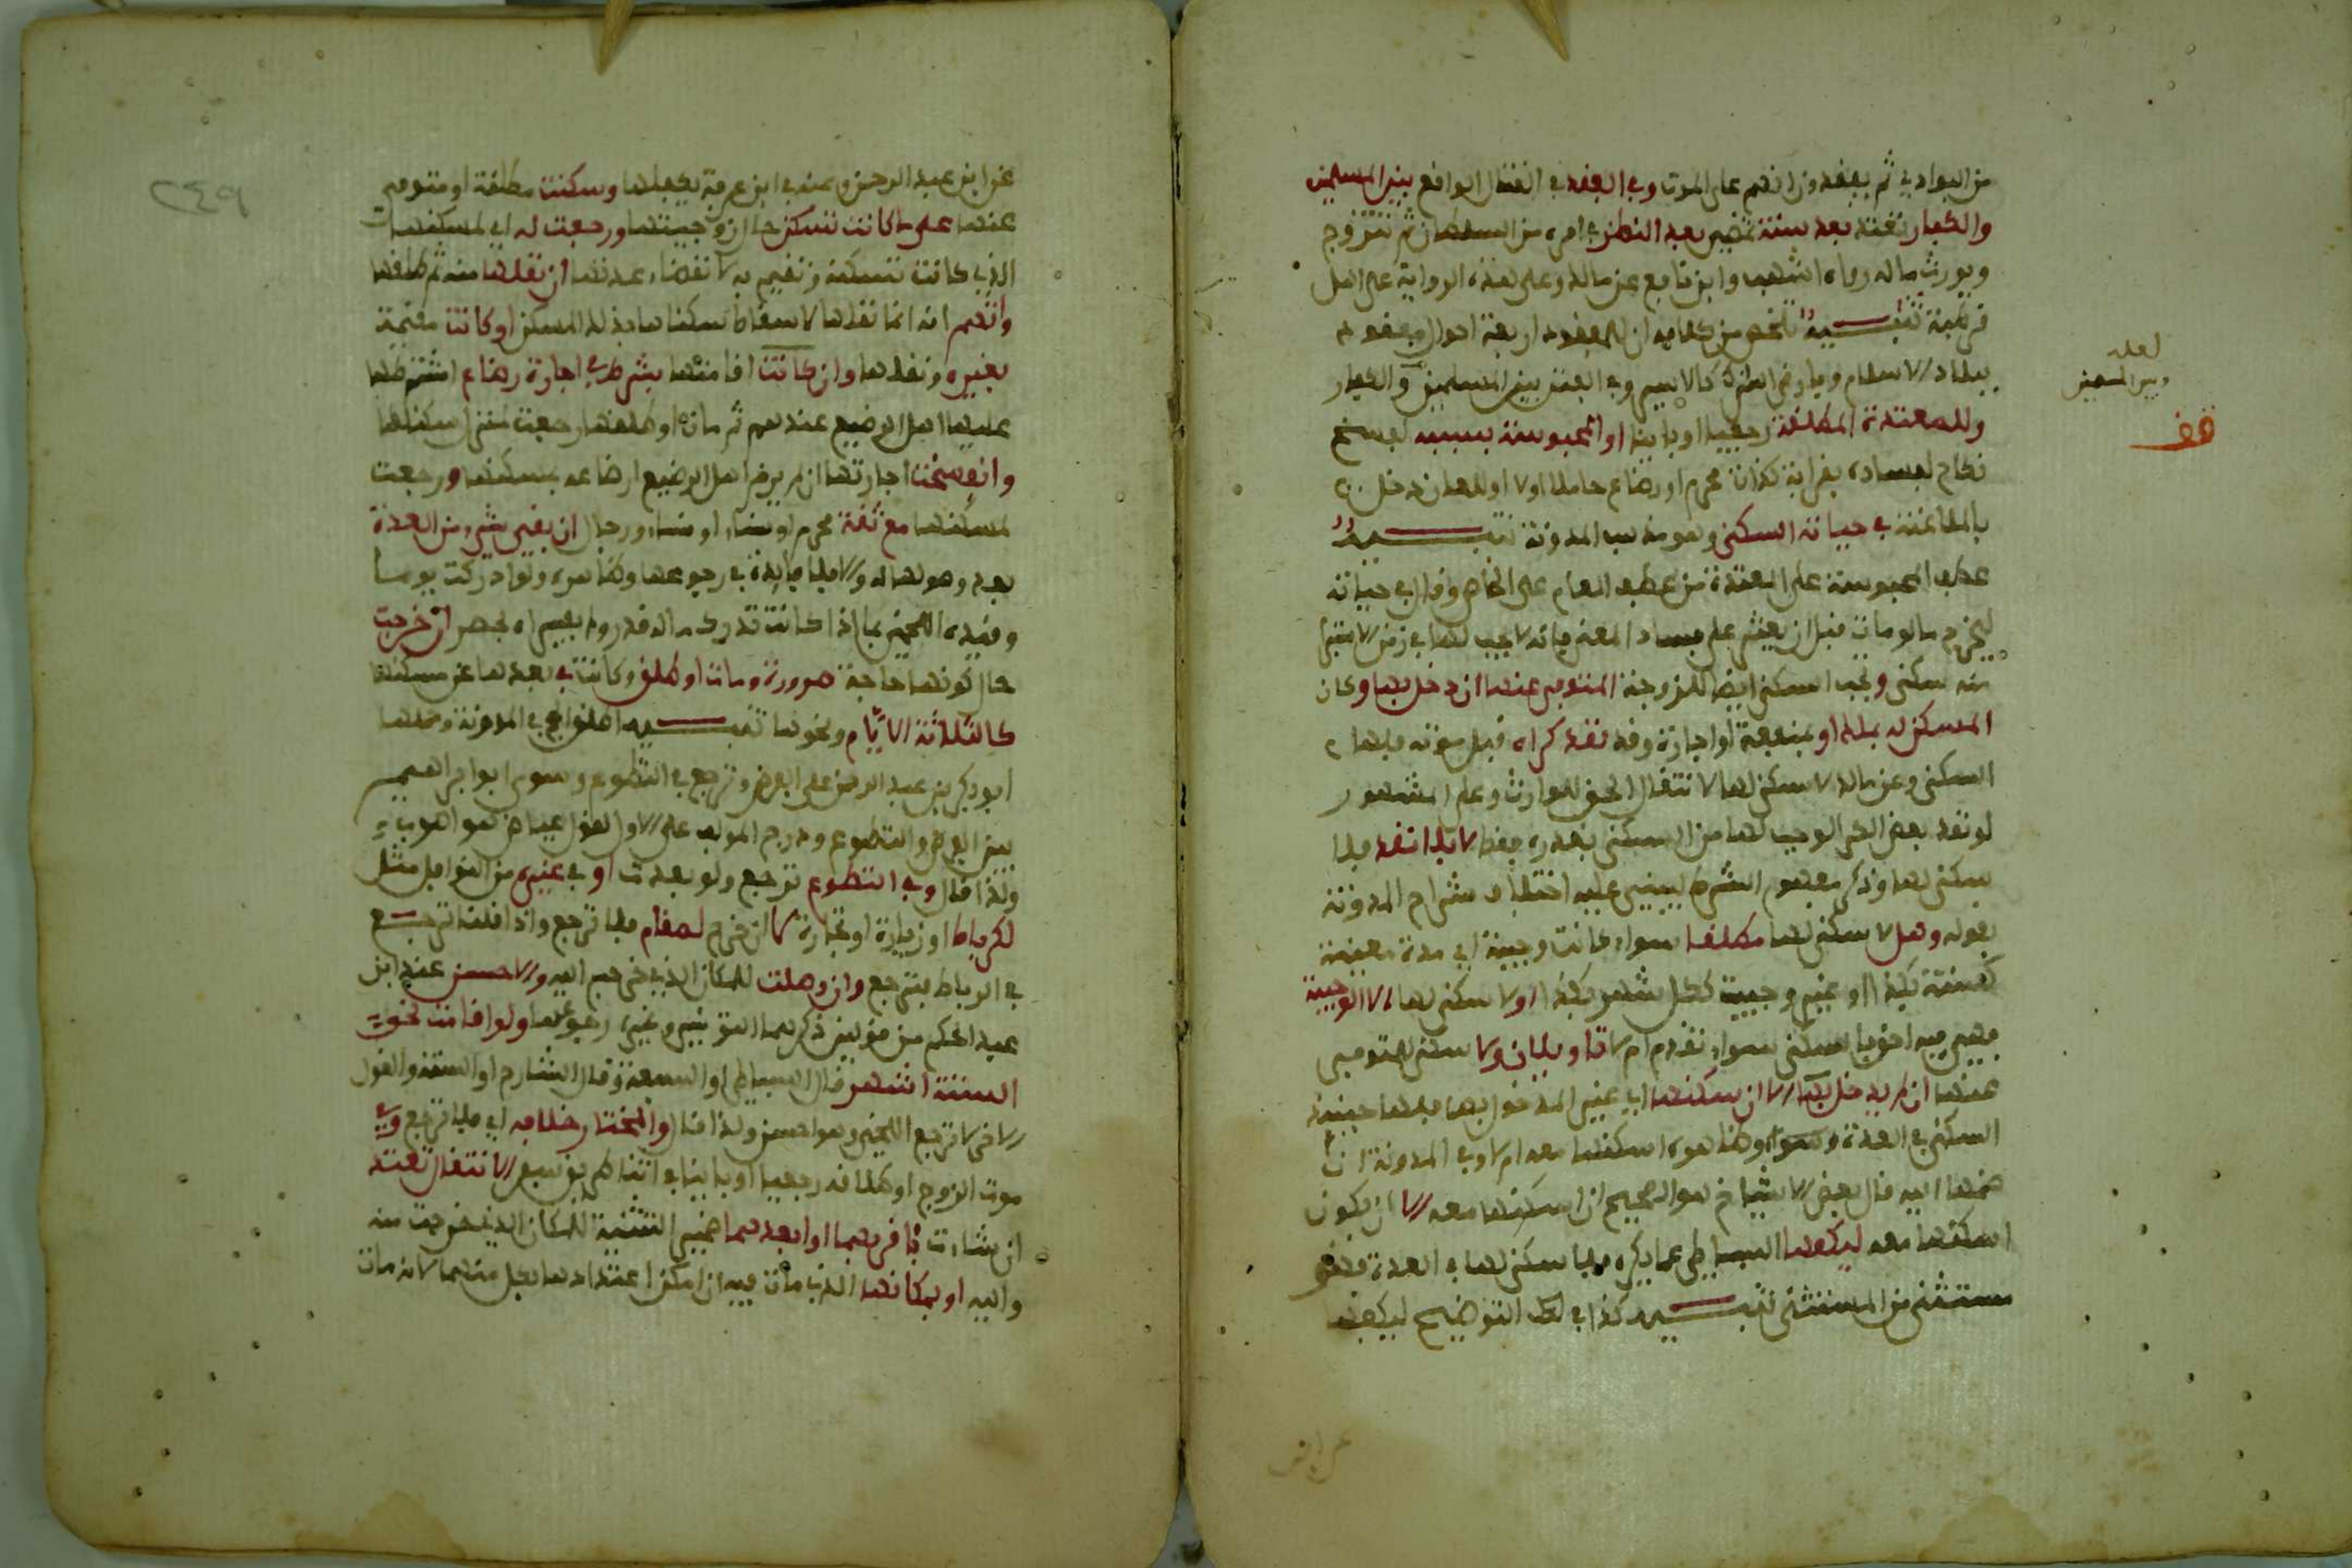 من البوادي ثم يفقدون انهم على الموت وفي الفقد في القتال الواقع بين المسلمين
والكفار تعتد بعد سنة تمضي بعد النظر في امره من السلطان ثم تتزوج
ويورث ماله رواه اشهب وابن نافع عن مالك وعلى هذه الرواية على العمل
قرطبة تنبيه تلخص من كلامه ان للمفقود اربعة احوال مفقود
ببلاد الاسلام وبارض الشرك كالاسير وفي الفتن بين المسلمين والكفار
وللمعتدة المطلقة رجعيا او باينا او المحبوسة بسببه لفسخ
نكاح لفساده بقرابة كذات محرم او رضاع حاملا او لا او للعان دخل
بالملاعنة في حياته السكنى وهو مذهب المدونة تنبيه
عطف المحبوسة على المعتدة من عطف العام على الخاص وقال في حياته
ليخرج ما لو مات قبل ان يعثر على فساد العقد فانه لا يجب لها في زمن الاستبرا
منه سكنى وتجب السكنى ايضا للزوجة المتوفى عنها ان دخل بها وكان
المسكن له بملك او بمنفعة او اجارة وقد نقد كراه قبل موته فلها
السكنى وعن مالك لا سكنى لها لانتقال الحق للوارث وعلى المشهور
لو نقد بعض الكرا لوجب لها من السكنى بقدره فقط لا بلا نقد فلا
سكنى لها وذكر مفهوم الشرط ليبني عليه اختلاف شراح المدونة
بقوله وهل لا سكنى لها مطلقا سواء كانت وجيبة اي مدة معينة
كسنة بكذا او غير وجيبة ككل شهر بكذا او لا سكنى لها الا الوجيبة
فهي فيه احق بالسكنى سواء نقد ام لا تاويلان ولا سكنى لمتوفى
عنها ان لم يدخل بها الا ان يسكنها اي غير المدخول بها فلها حينئذ
السكنى في العدة وسواء وظاهره اسكنها معه ام لا وفي المدونة ان
ضمها اليه قال بعض الاشياخ هو الصحيح ان اسكنها معه الا ان يكون
اسكنها معه ليكفها البساطي عما يكره فلا سكنى لها في العدة فهو
مستثنى من المستثنى تنبيه كذا في لفظ التوضيح ليكفها
لعله
وبين المسلمين
قف
عن ابن
٢٤٩
عن ابن عبد الرحمن وعنه في ابن عرفة يكفلها وسكنت مطلقة او متوفى
عنها على ما كانت تسكن حال زوجيتها ورجعت له اي لمسكنها
الذي كانت تسكنه وتقيم به لانقضاء عدتها ان نقلها منه ثم طلقها
واتهم انه انما نقلها لاسقاط سكناها بذلك المسكن او كانت مقيمة
بغيره ونقلها وان كانت اقامتها بشرط في اجارة رضاع اشترطها
عليها اهل الرضيع عندهم ثم مات او طلقها رجعت لمنزل سكناها
وانفسخت اجارتها ان لم يرض اهل الرضيع ارضاعه بمسكنها ورجعت
لمسكنها مع ثقة محرم او نساء او نساء ورجال ان بقي شيء من العدة
بعد وصولها له والا فلا فايدة في رجوعها وظاهره ولو ادركت يوما
وقيده اللخمي بما اذا كانت تدرك ماله قدر وله بقية اه مختصر ان خرجت
حال كونها حاجة صرورة ومات او طلق وكانت في بعدها عن مسكنها
كالثلاثة الايام ونحوها تنبيه اطلق الحج في المدونة وحملها
ابو بكر بن عبد الرحمن على الفرض وترجع في التطوع وسوى ابو ابراهيم
بين الفرض والتطوع ودرج المؤلف على الاول لقول عياض هو اصوب
ولذا قال وفي التطوع ترجع ولو بعدت او في غيره من النوافل مثل
لكرباط او زيارة او تجارة كان خرج لمقام فلا ترجع واذا قلنا ترجع
في الرباط فترجع وان وصلت للمكان الذي خرجت اليه والاحسن عند ابن
عبد الحكم من قولين ذكرهما التونسي وغيره رجوعها ولو اقامت نحو
الستة اشهر قال البساطي او السبعة وقال الشارح او السنة والقول
الاخر لا ترجع اللخمي وهو احسن ولذا قال والمختار خلافه اي فلا ترجع وفي
موت الزوج او طلاقه رجعيا او باينا في اثنا طريق سفر الانتقال تعتد
ان شاءت باقربهما او ابعدهما ضمير التثنية للمكان الذي خرجت منه
واليه او بمكانها الذي مات فيه ان امكن اعتدادها بكل منهما لانه مات